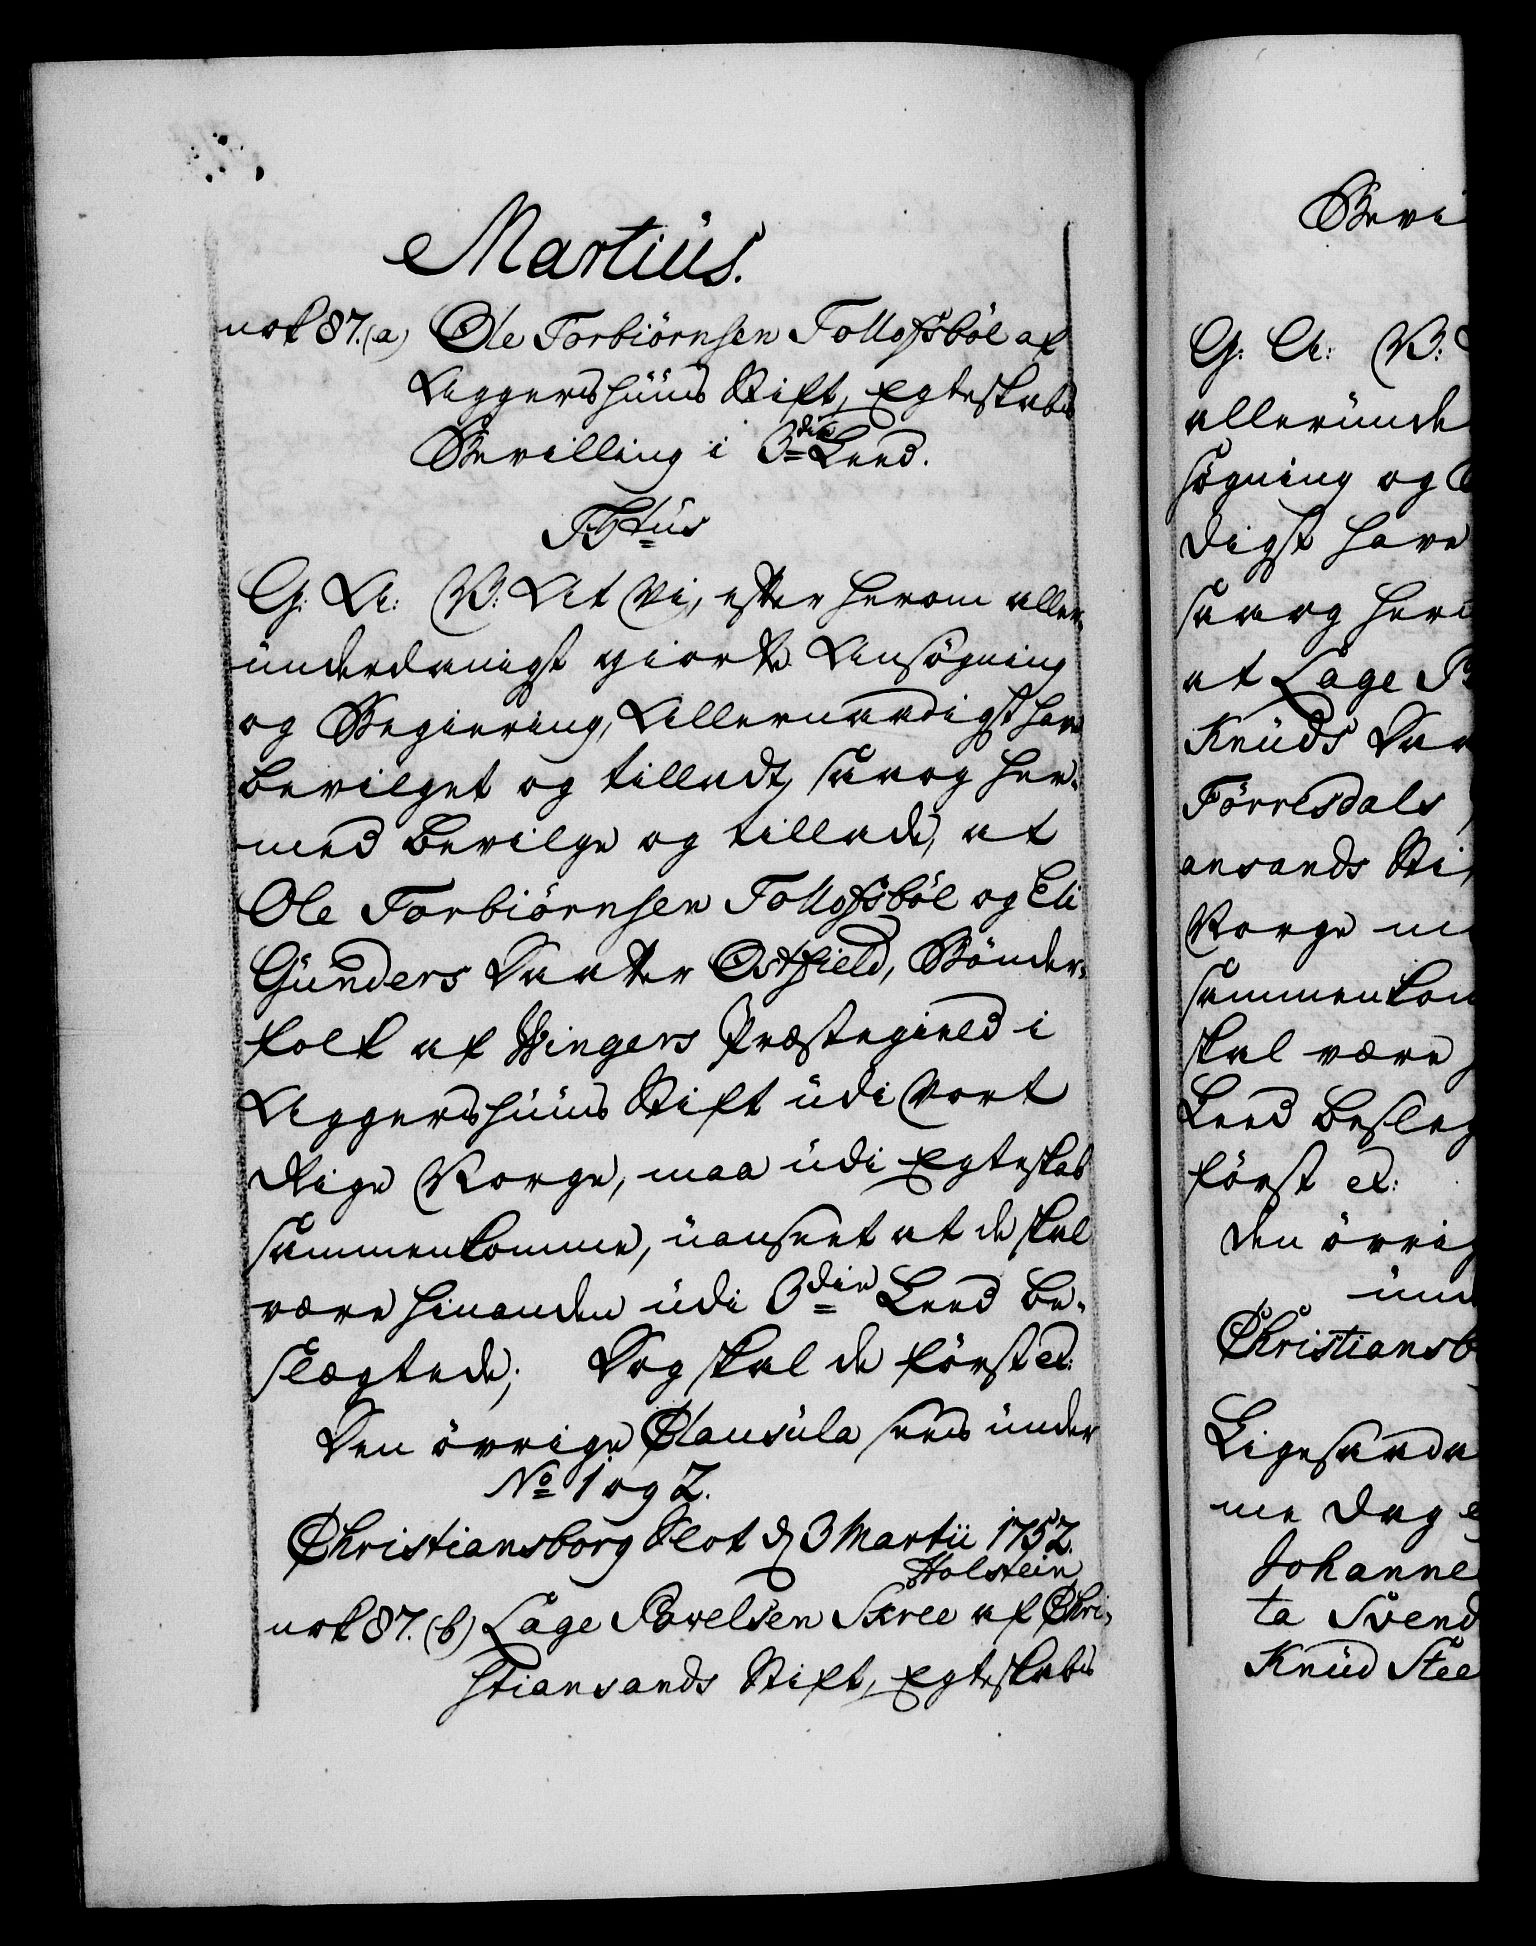 Martiüs.
not 87. (a) Ole Torbiörnsen Tollofsböl af
Aggershüüs Stift, Egteskabs
Bevilling i 3die Leed.
Ftüs
G: A: V: At Vi, efter herom aller,
ünderdanigst giorte Ansøgning
og Begiering, Allernaadigst have
bevilget og tilladt, saa og her,
med bevilge og tillade, at
Ole Torbiörnsen Tollofsböl og Eli
Günders Daatter Ostfield, Bönder,
folk af Wingers Præstegield i
Aggershüüs Stift üdi Vort
Rige Norge, maa üdi Egteskab
sammenkomme, üanseet at de skal
være hinanden üdi 3die Leed be,
slægtede; Dog skal de först et:
Den övrige Clausüla sees ünder
No 1 og 2.
Christiansborg Slot d 3 Martii 1752.
Holstein
not 87. (b) Lage Powelsen Skree af Chri,
stiansands Stift, Egteskabs
Bevi
G: A: V:
alleründe
søgning og
digst have
saa og her
at Lage P
Knüds Daa
Förresdals
ansands Sti
Norge m
sammenkom
skal være
Leed besleg
först et:
den övrig
ünd
Christiansb
Ligesaada
me Dag
Johanne
ta Svend
Knüd Stee